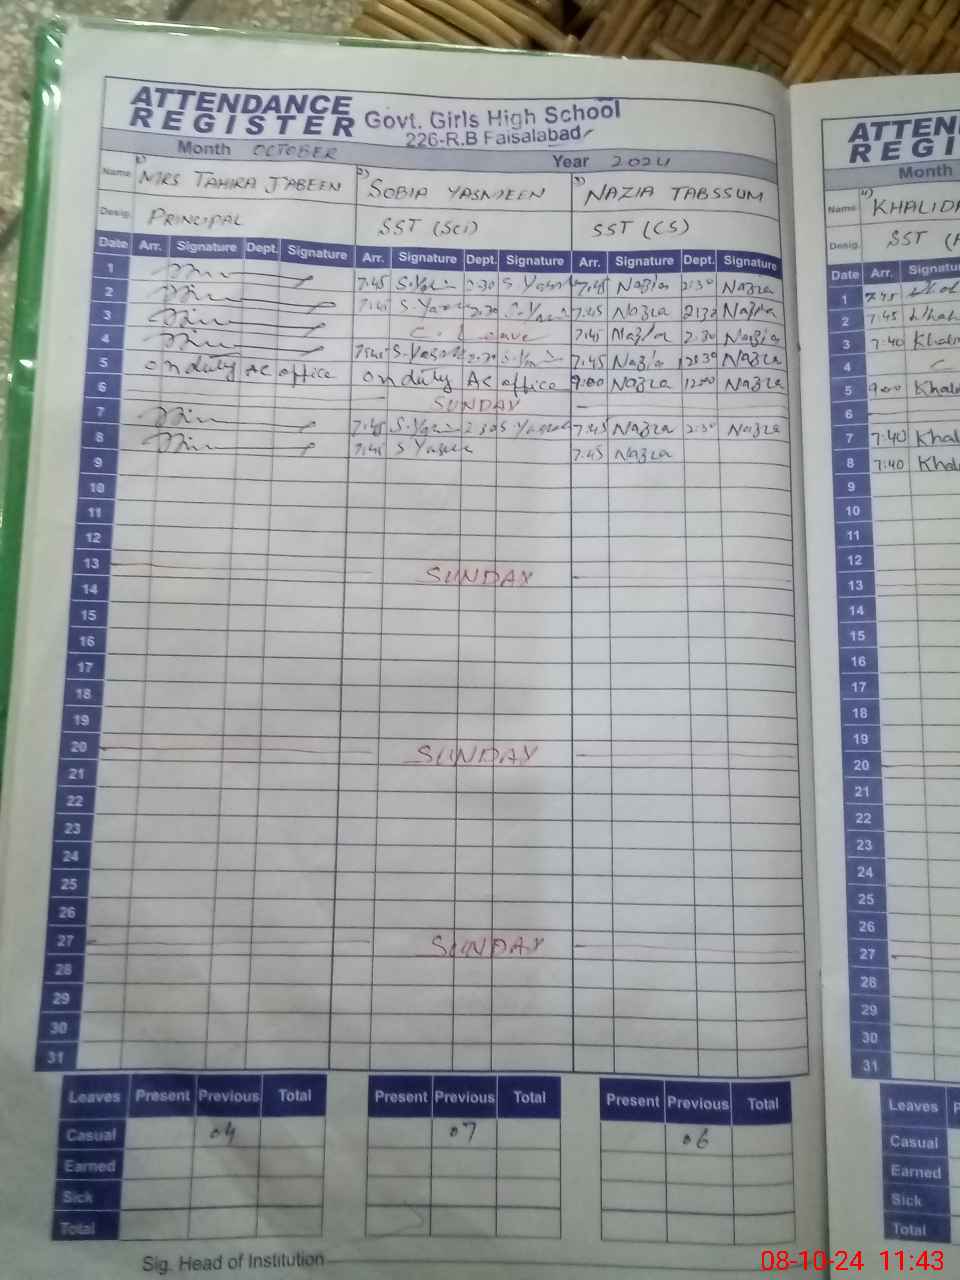 ATTENDANCE REGISTER Govt. Girls High School
226-R.B Faisalabad
Month OCTOBER Year 2024
Name 1) MRS TAHIRA JABEEN 2) SOBIA YASMEEN 3) NAZIA TABSSUM
Desig. PRINCIPAL SST (Sci) SST (CS)
Date Arr. Signature Dept. Signature Arr. Signature Dept. Signature Arr. Signature Dept. Signature
1 7.45 2.30 7.45 Nazia 2:30 Nazia
2 7.45 2.30 7.45 Nazia 2:30 Nazia
3 C. Leave 7.45 Nazia 2.30 Nazia
4 7.45 2.30 7.45 Nazia Nazia
5 on duty AC office on duty AC office 9:00 Nazia 12:00 Nazia
6 SUNDAY
7 7.45 2.30 7.45 Nazia 2:30 Nazia
8 7.45 7.45 Nazia
9
10
11
12
13 SUNDAY
14
15
16
17
18
19
20 SUNDAY
21
22
23
24
25
26
27 SUNDAY
28
29
30
31
Leaves Present Previous Total Present Previous Total Present Previous Total
Casual 04 07 06
Earned
Sick
Total
Sig. Head of Institution
ATTEN
REGI
Month
Name 4) KHALIDA
Desig. SST
Date Arr. Signatu
1 7.45
2 7.45
3 7:40
4 C
5 9:00 Khal
6
7 7:40 Khal
8 7:40 Khal
9
10
11
12
13
14
15
16
17
18
19
20
21
22
23
24
25
26
27
28
29
30
31
Leaves P
Casual
Earned
Sick
Total
08-10-24 11:43